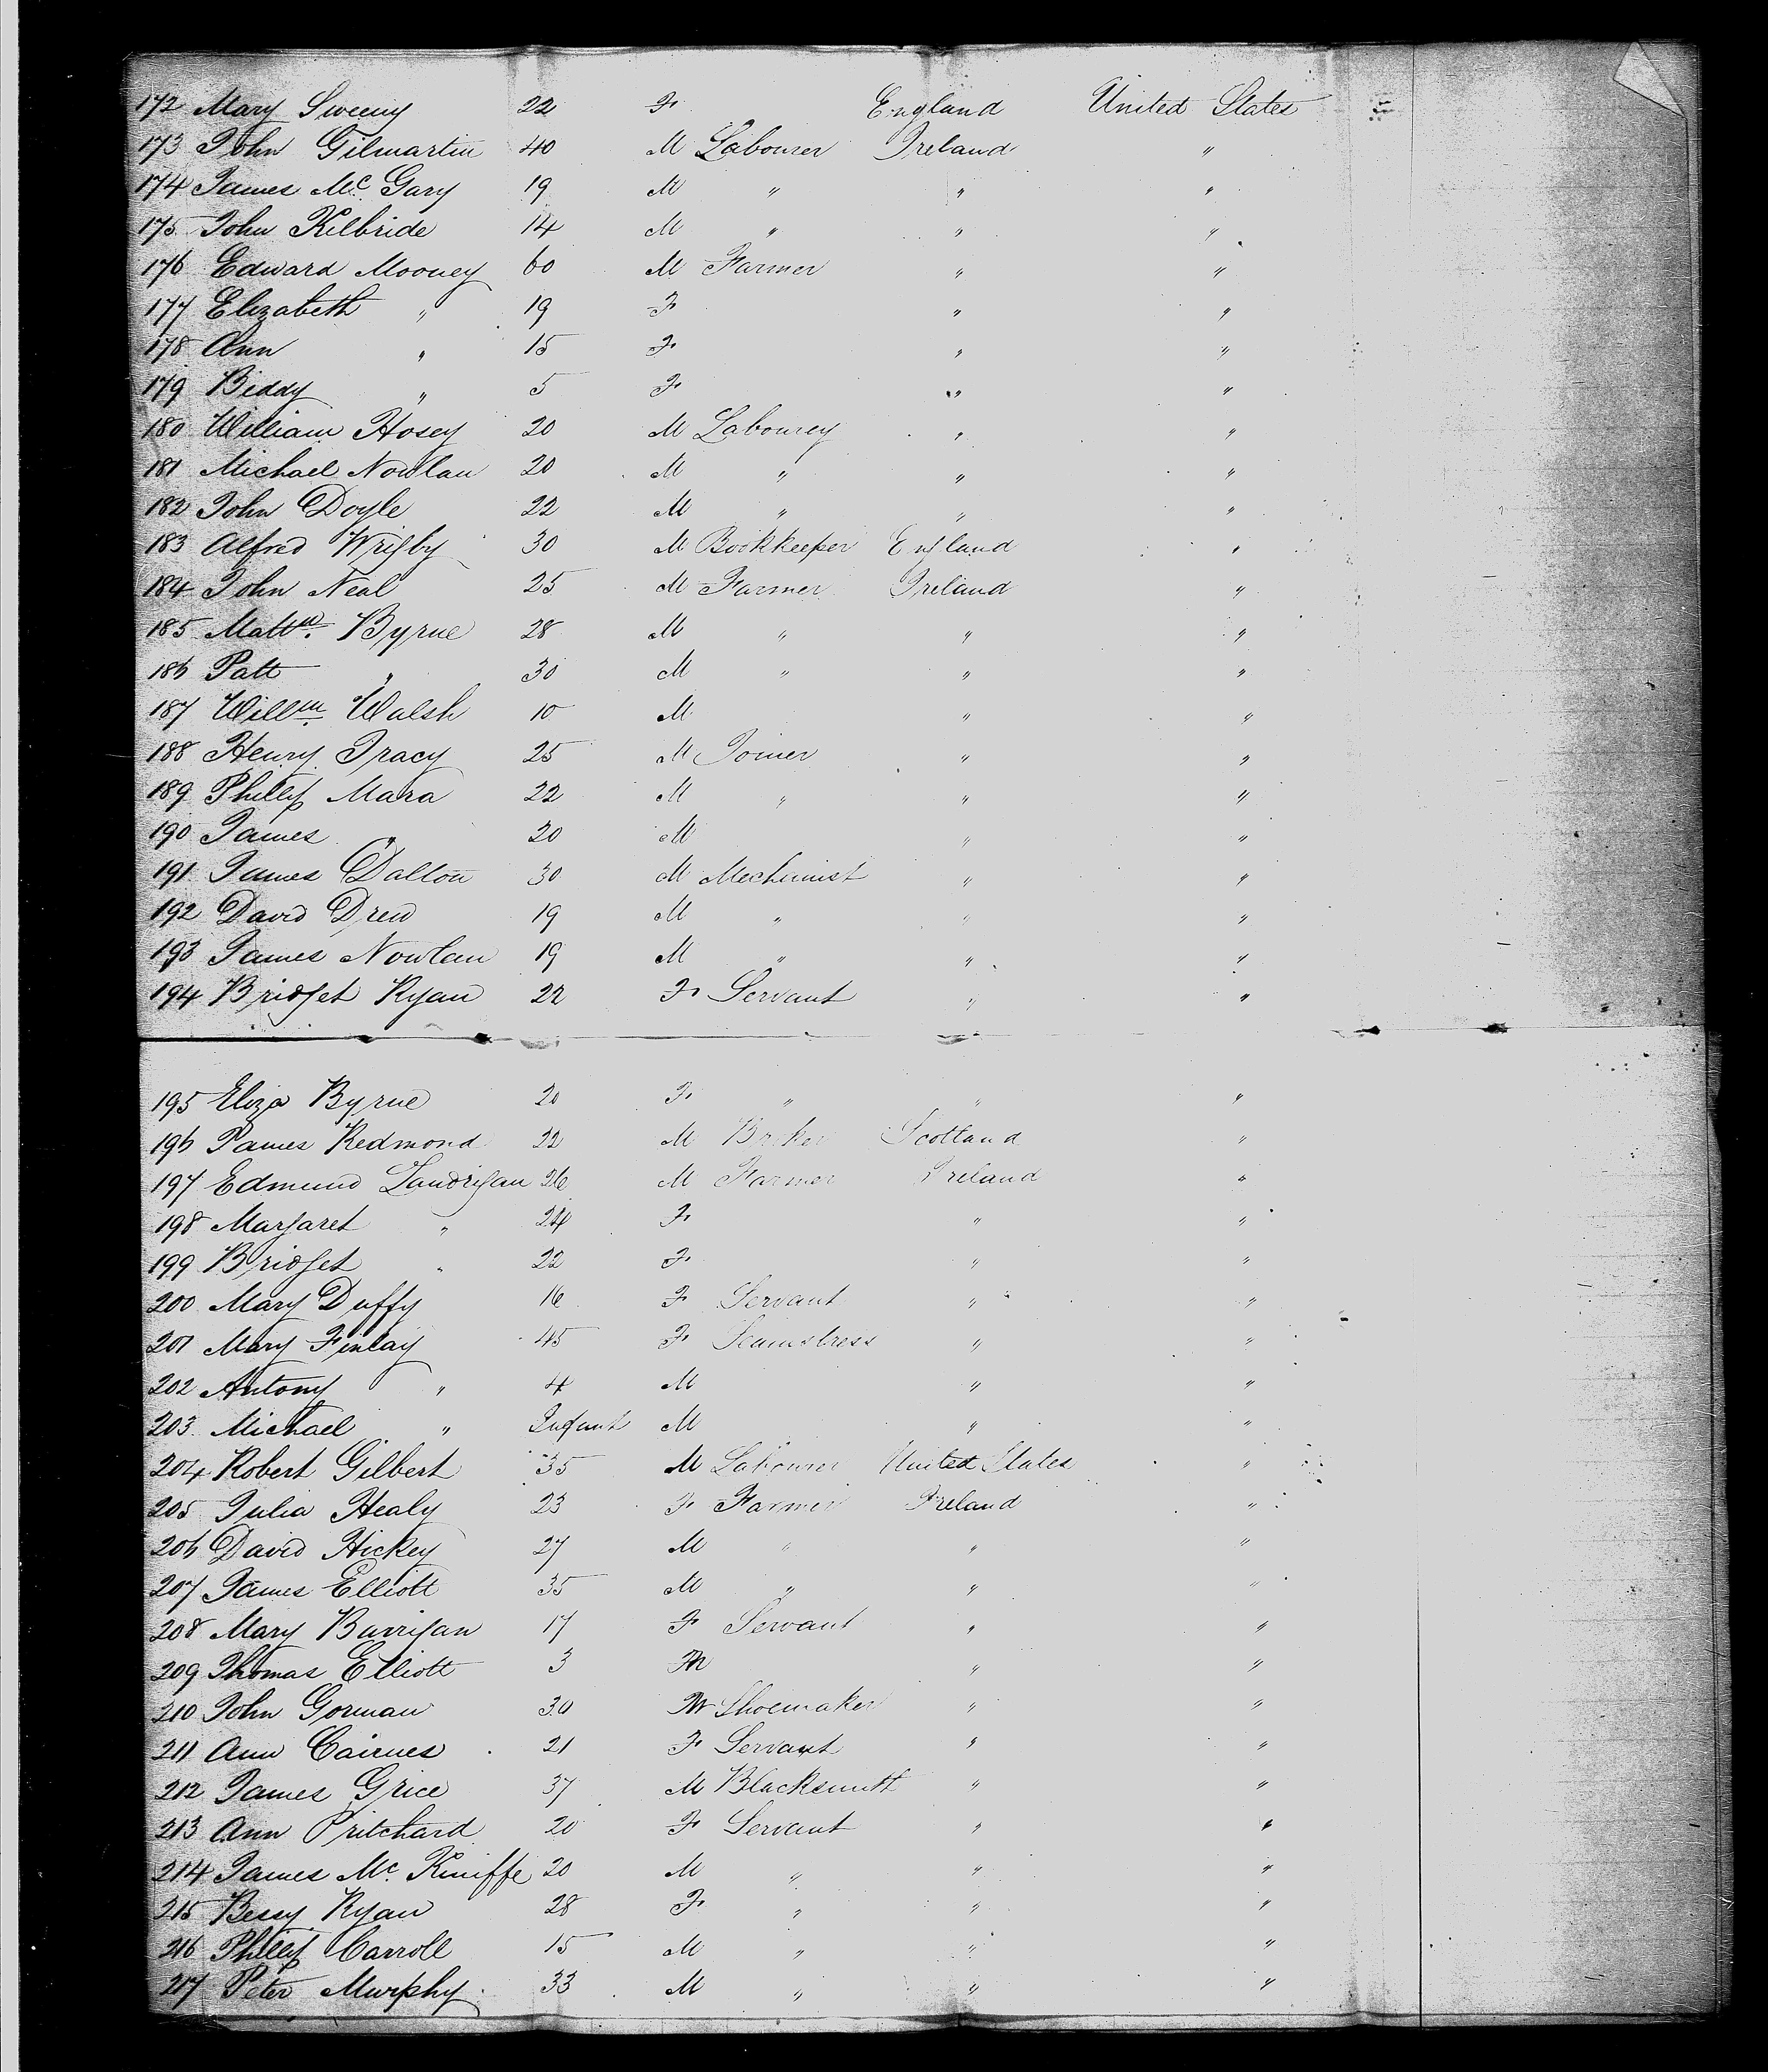 172 Mary Sweeny 22 F. England United States
173 John Gilmartin 40 M Labourer Ireland "
174 James Mc Gary 19 M " " "
175 John Kilbride 14 M " " "
176 Edward Mooney 60 M Farmer " "
177 Elizabeth " 19 F " "
178 Ann " 15 F. " "
179 Biddy " 5 F. " "
180 William Hosey 20 M Labourer " "
181 Michael Nowlan 20 M " " "
182 John Doyle 22 M " " "
183 Alfred Wrigby 30 M Bookkeeper England "
184 John Neal 25 M Farmer Ireland "
185 Mattw. Byrne 28 M " " "
186 Patt " 30 M " " "
187 Willm Walsh 10 M " "
188 Henry Tracy 25 M Joiner " "
189 Phillip Mara 22 M " " "
190 James " 20 M " "
191 James Dalton 30 M Mechinist " "
192 David Drew 19 M " " "
193 James Nowlan 19 M " " "
194 Bridget Ryan 22 F. Servant " "
195 Eliza Byrne 20 F. " " "
196 James Redmond 22 M Scotland "
197 Edmund Landrigan 26 M Farmer Ireland "
198 Margaret " 24 F. " "
199 Bridget " 22 F. " "
200 Mary Duffy 16 F Servant " "
201 Mary Finlay 45 F. Seamstress " "
202 Antony " 4 M " "
203 Michael " Infant M " "
204 Robert Gilbert 35 M Labourer United States "
205 Julia Healy 23 F. Farmer Ireland "
206 David Hickey 27 M " " "
207 James Elliott 35 M " " "
208 Mary Barrigan 17 F. Servant " "
209 Thomas Elliott 3 M " "
210 John Gorman 30 M Shoemaker " "
211 Ann Cairnes 21 F. Servant " "
212 James Grice 37 M Blacksmith " "
213 Ann Pritchard 20 F. Servant " "
214 James Mc. Kiniffe 20 M " " "
215 Bessy Ryan 28 F. " " "
216 Phillip Carroll 15 M " " "
217 Peter Murphy 33 M " " "